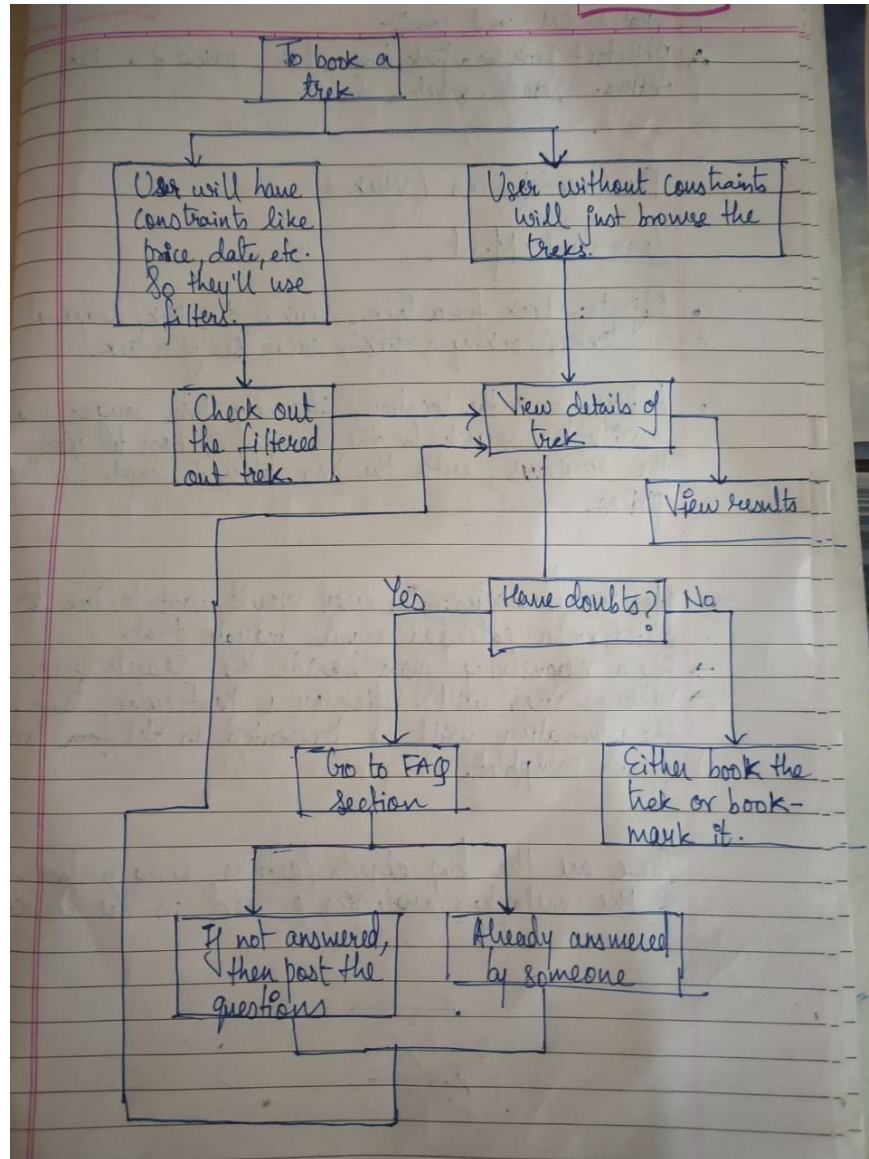 To book a
trek
User will have
constraints like
price, date, etc.
So they'll use
filters.
User without constraints
will just browse the
treks.
Check out
the filtered
out trek.
View details of
trek
View results
Have doubts?
Yes
No
Go to FAQ
section
Either book the
trek or book-
mark it.
If not answered,
then post the
questions
Already answered
by someone